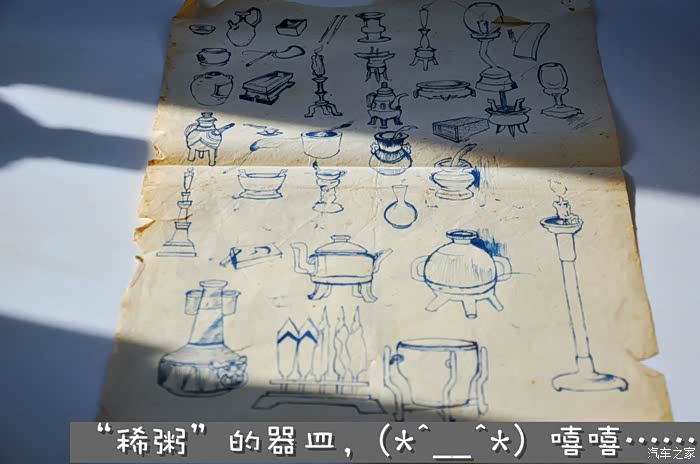 “稀粥”的器皿，(*^__^*) 嘻嘻……
汽车之家